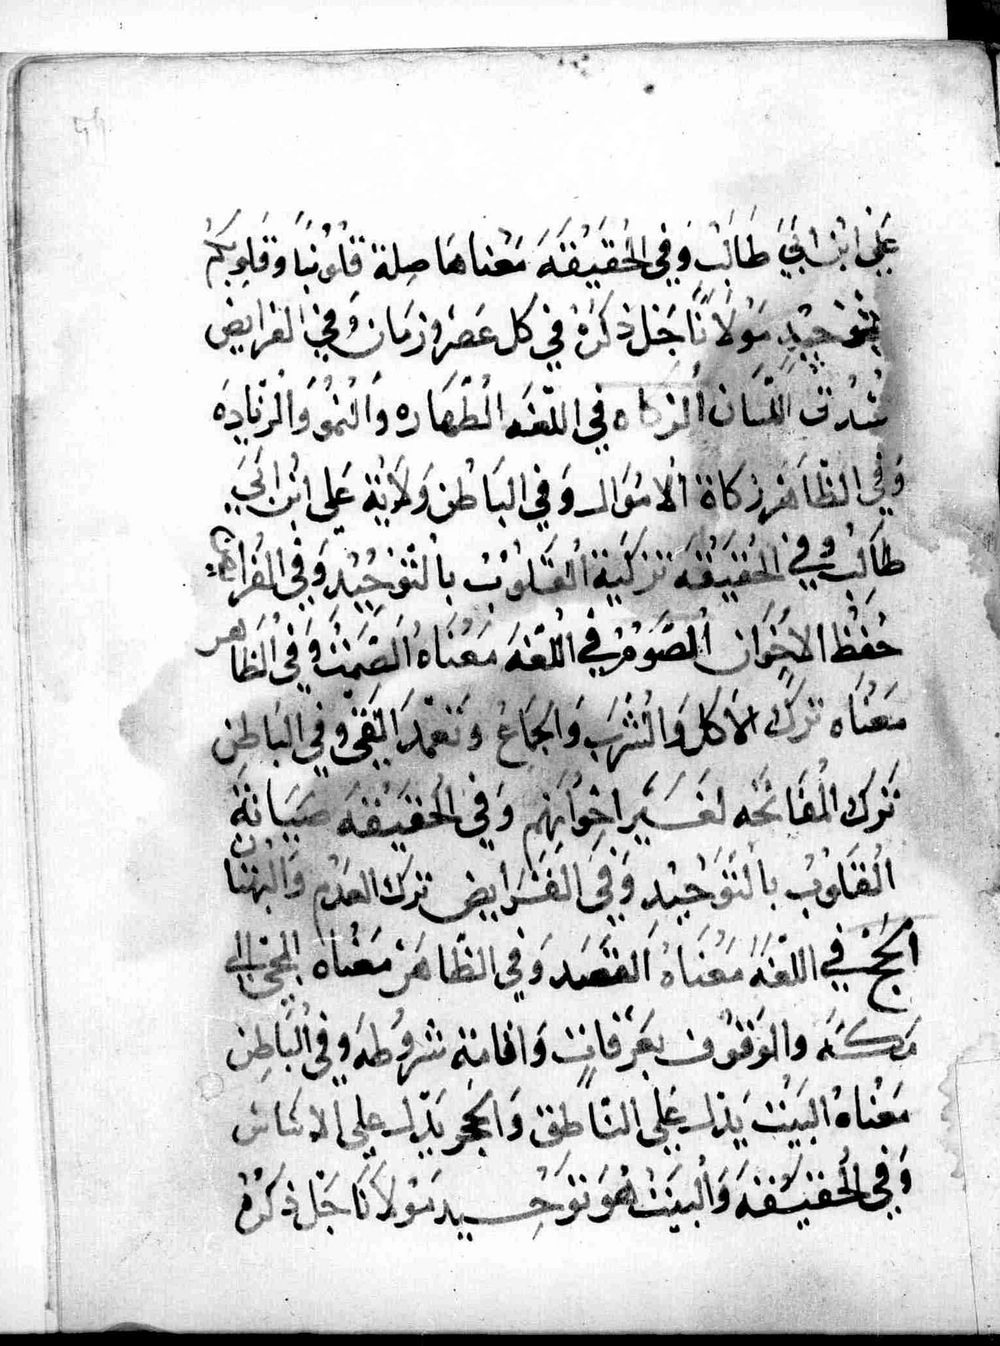 علي ابن ابي طالب وفي الحقيقه معناها صلة قلوبنا وقلوبكم
بتوحيد مولانا جل ذكره في كل عصر وزمان وفي الفرايض
سدق اللسان الزكاه في اللغه الطهاره والنمو والزياده
وفي الظاهر زكاة الاموال وفي الباطن ولاية علي ابن ابي
طالب وفي الحقيقه تزكية القلوب بالتوحيد وفي الفرايض
حفظ الاخوان الصوم في اللغه معناه الصمت وفي الظاهر
معناه ترك الاكل والشرب والجماع وتعمد القي وفي الباطن
ترك المفاتحه لغير اخوانهم وفي الحقيقه صيانة
القلوب بالتوحيد وفي الفرايض ترك العدم والبهتان
الحج في اللغه معناه القصد وفي الظاهر معناه المجي الي
مكه والوقوف بعرفات واقامة شروطه وفي الباطن
معناه البيت يدل علي الناطق والحجر يدل علي الاساس
وفي الحقيقه والبيت هو توحيد مولانا جل ذكره